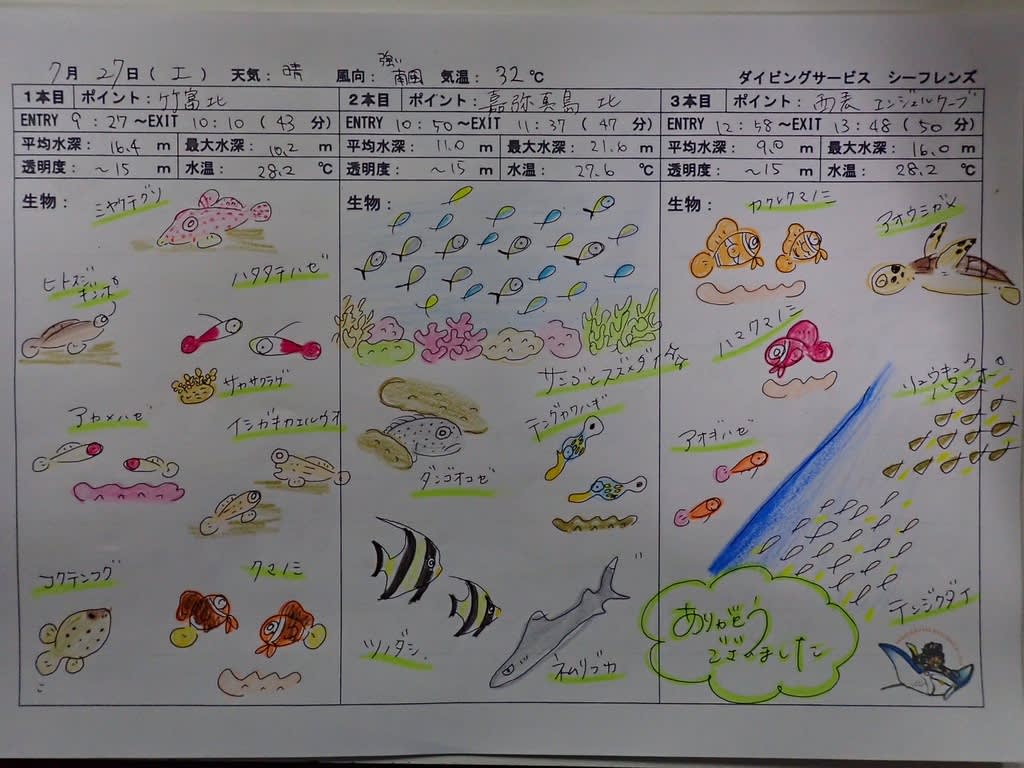 7月 27日(土) 天気:晴 風向:強い南風 気温:32℃
ダイビングサービス シーフレンズ
1本目 ポイント:竹富北
ENTRY 9:27~EXIT 10:10(43分)
平均水深:16.4m 最大水深:10.2m
透明度:~15m 水温:28.2℃
生物:
ミヤケテグリ
ヒトスジギンポ
ハタタテハゼ
サカサクラゲ
アカメハゼ
イシガキカエルウオ
コクテンフグ
クマノミ
2本目 ポイント:嘉弥真島 北
ENTRY 10:50~EXIT 11:37(47分)
平均水深:11.0m 最大水深:21.6m
透明度:~15m 水温:27.6℃
生物:
サンゴとスズメダイ
ダンゴオコゼ
テングカワハギ
ツノダシ
ネムリブカ
3本目 ポイント:西表 エンジェルケーブ
ENTRY 12:58~EXIT 13:48(50分)
平均水深:9.0m 最大水深:16.0m
透明度:~15m 水温:28.2℃
生物:
カクレクマノミ
アオウミガメ
ハマクマノミ
リュウキュウ
ハタンポ
アオギハゼ
テンジクダイ
ありがとう
ございました